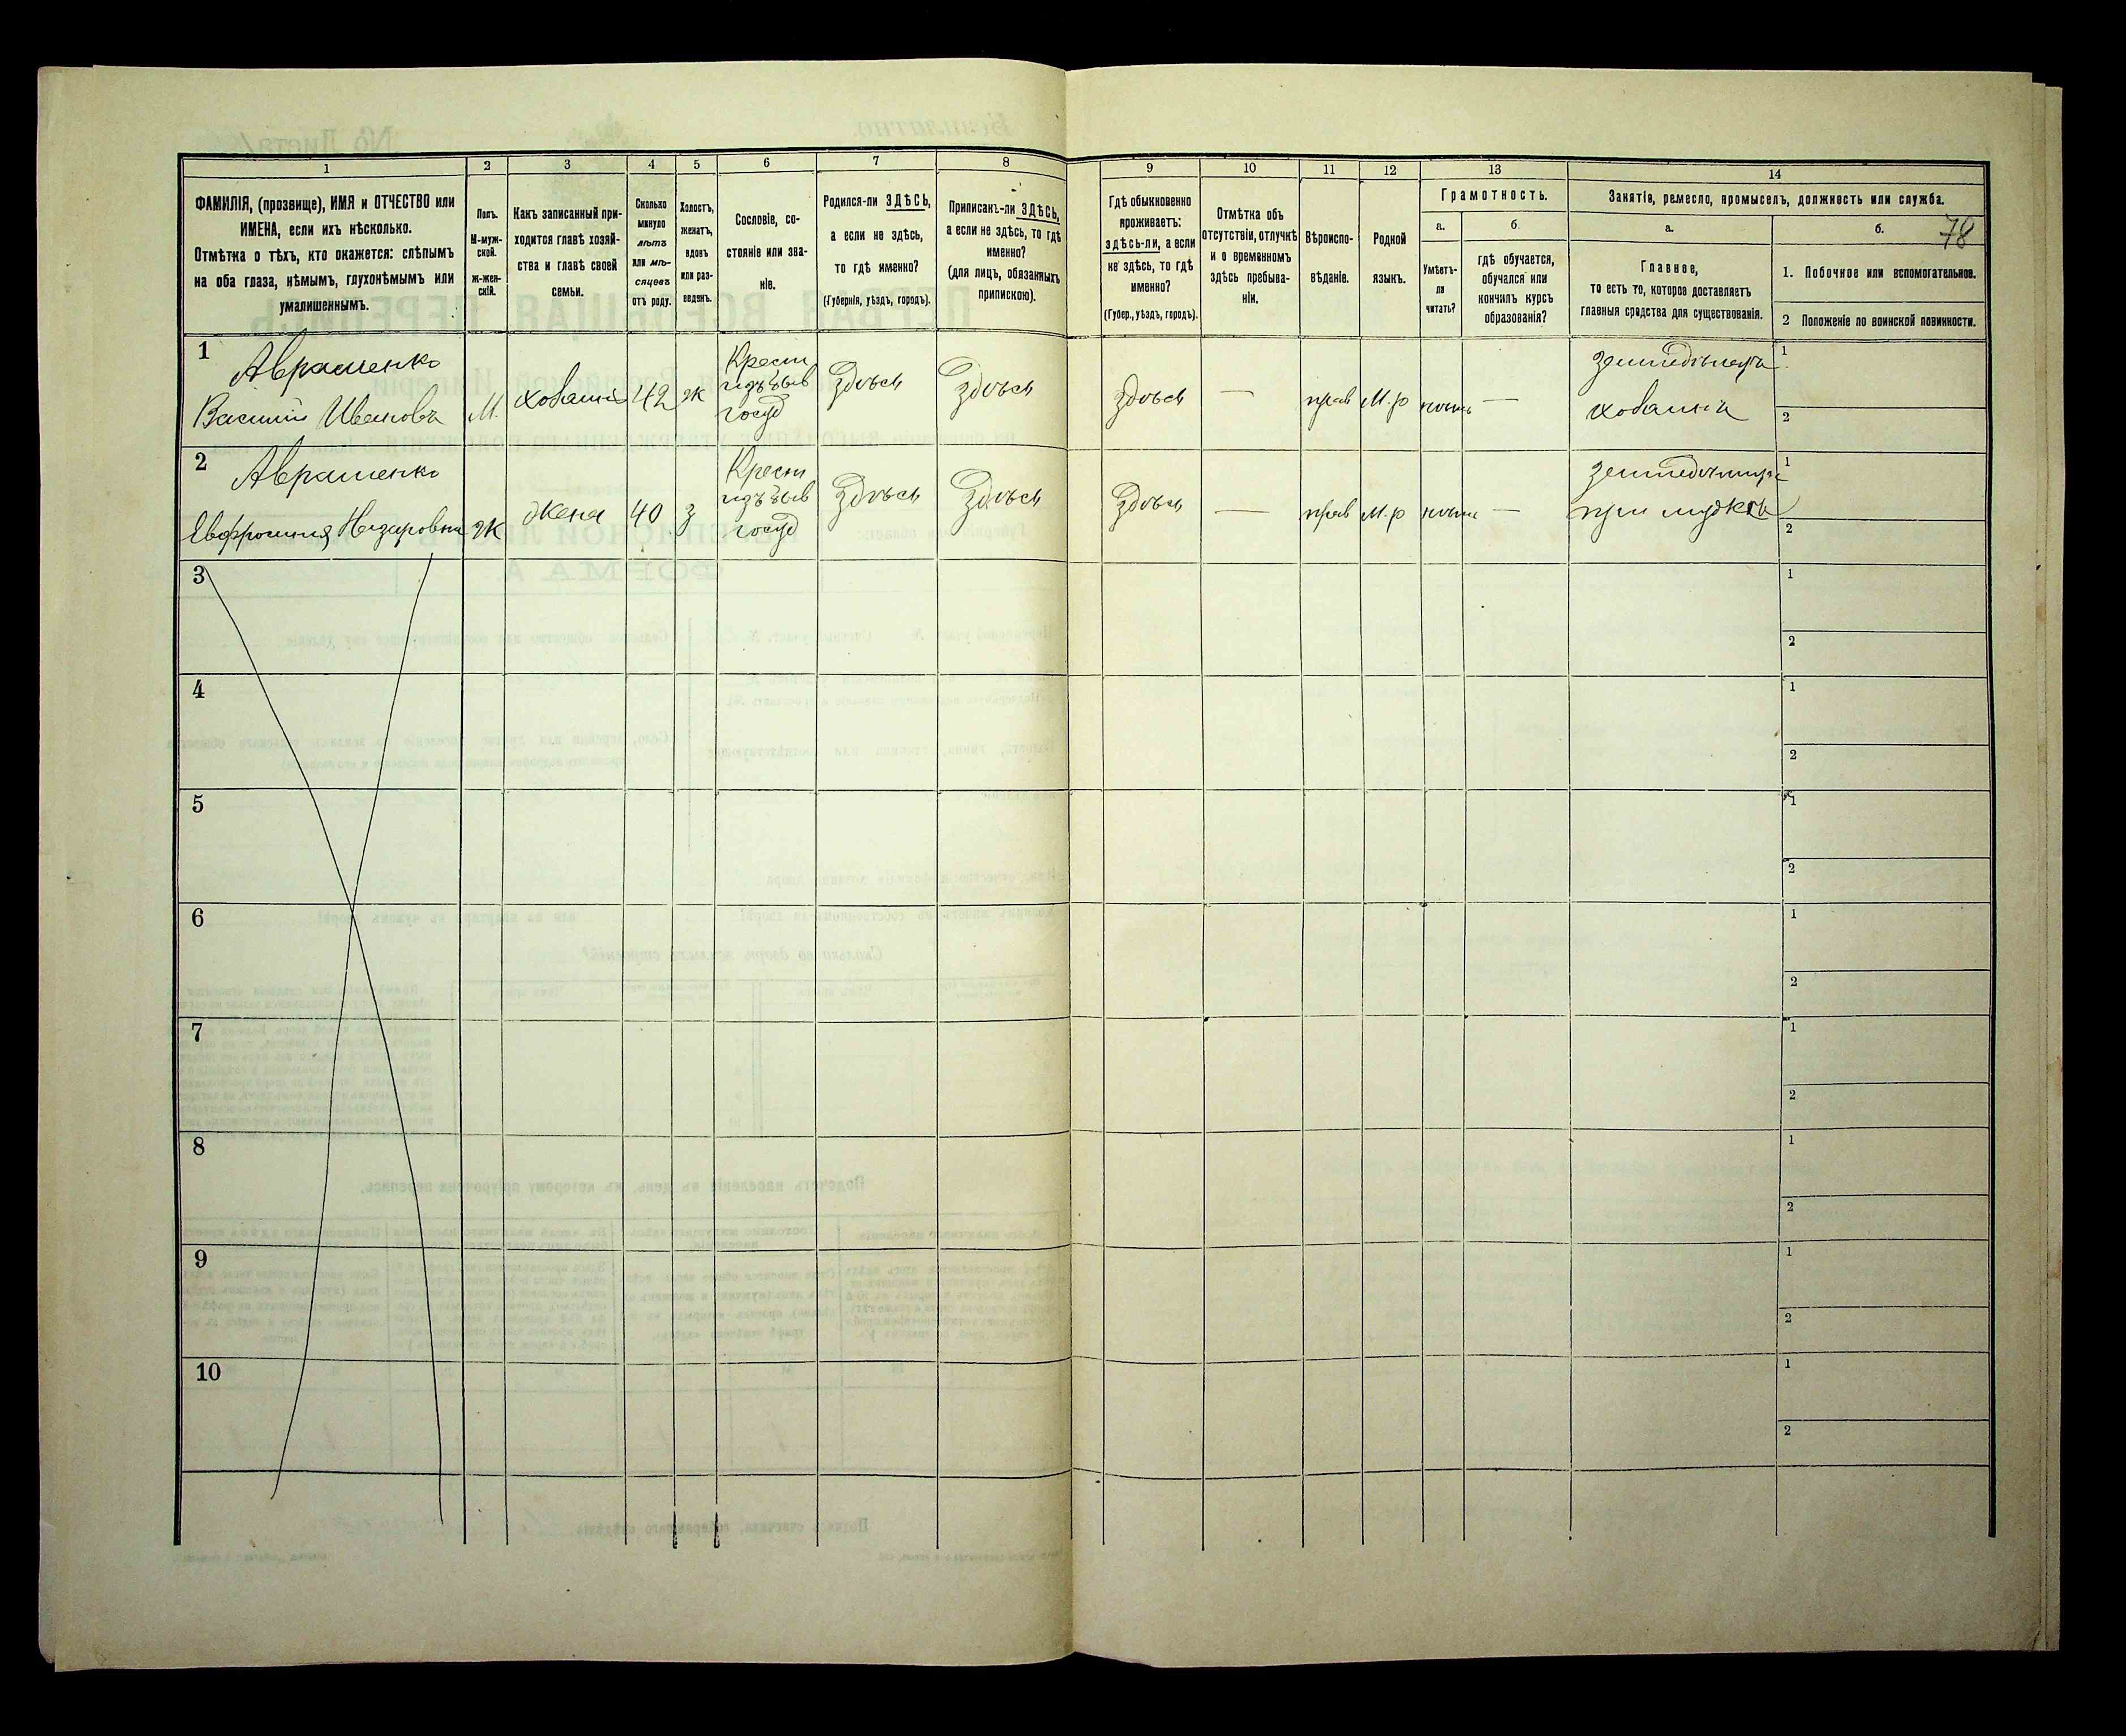 78
1
2
3
4
5
6
7
8
9
10
11
12
13
14
ФАМИЛІЯ, (прозвище), ИМЯ и ОТЧЕСТВО или
ИМЕНА, если ихъ нѣсколько.
Отмѣтка о тѣхъ, кто окажется: слѣпымъ
на оба глаза, нѣмымъ, глухонѣмымъ или
умалишеннымъ.
Полъ.
М-муж-
ской.
Ж-жен-
скій.
Какъ записанный при-
ходится главѣ хозяй-
ства и главѣ своей
семьи.
Сколько
минуло
лѣтъ
или мѣ-
сяцевъ
отъ роду.
Холостъ,
женатъ,
вдовъ
или раз-
веденъ.
Сословіе, со-
стояніе или зва-
ніе.
Родился-ли ЗДѢСЬ,
а если не здѣсь,
то гдѣ именно?
(Губернія, уѣздъ, городъ).
Приписанъ-ли ЗДѢСЬ,
а если не здѣсь, то гдѣ
именно?
(для лицъ, обязанныхъ
припискою).
Гдѣ обыкновенно
проживаетъ:
здѣсь-ли, а если
не здѣсь, то гдѣ
именно?
(Губер., уѣздъ, городъ).
Отмѣтка объ
отсутствіи, отлучкѣ
и о временномъ
здѣсь пребыва-
ніи.
Вѣроиспо-
вѣданіе.
Родной
языкъ.
Грамотность.
а.
Умѣетъ-
ли
читать?
б
гдѣ обучается,
обучался или
кончилъ курсъ
образованія?
Занятіе, ремесло, промыселъ, должность или служба.
а.
Главное,
то есть то, которое доставляетъ
главныя средства для существованія.
б.
1. Побочное или вспомогательное.
2 Положеніе по воинской повинности.
1
Авраменко
Василій Ивановъ
М.
хозаинъ
42
ж
Крест
изъ быв
госуд
здѣсь
здѣсь
здѣсь
—
прав
М.р
—
земледѣлецъ
хозаинъ
1
2
2
Авраменко
Евфросинія Назаровна
Ж
Жена
40
з
Крест
изъ быв
госуд
здѣсь
здѣсь
здѣсь
—
прав
М.р
—
при мужѣ
1
2
3
1
2
4
1
2
5
1
2
6
1
2
7
1
2
8
1
2
9
1
2
10
1
2